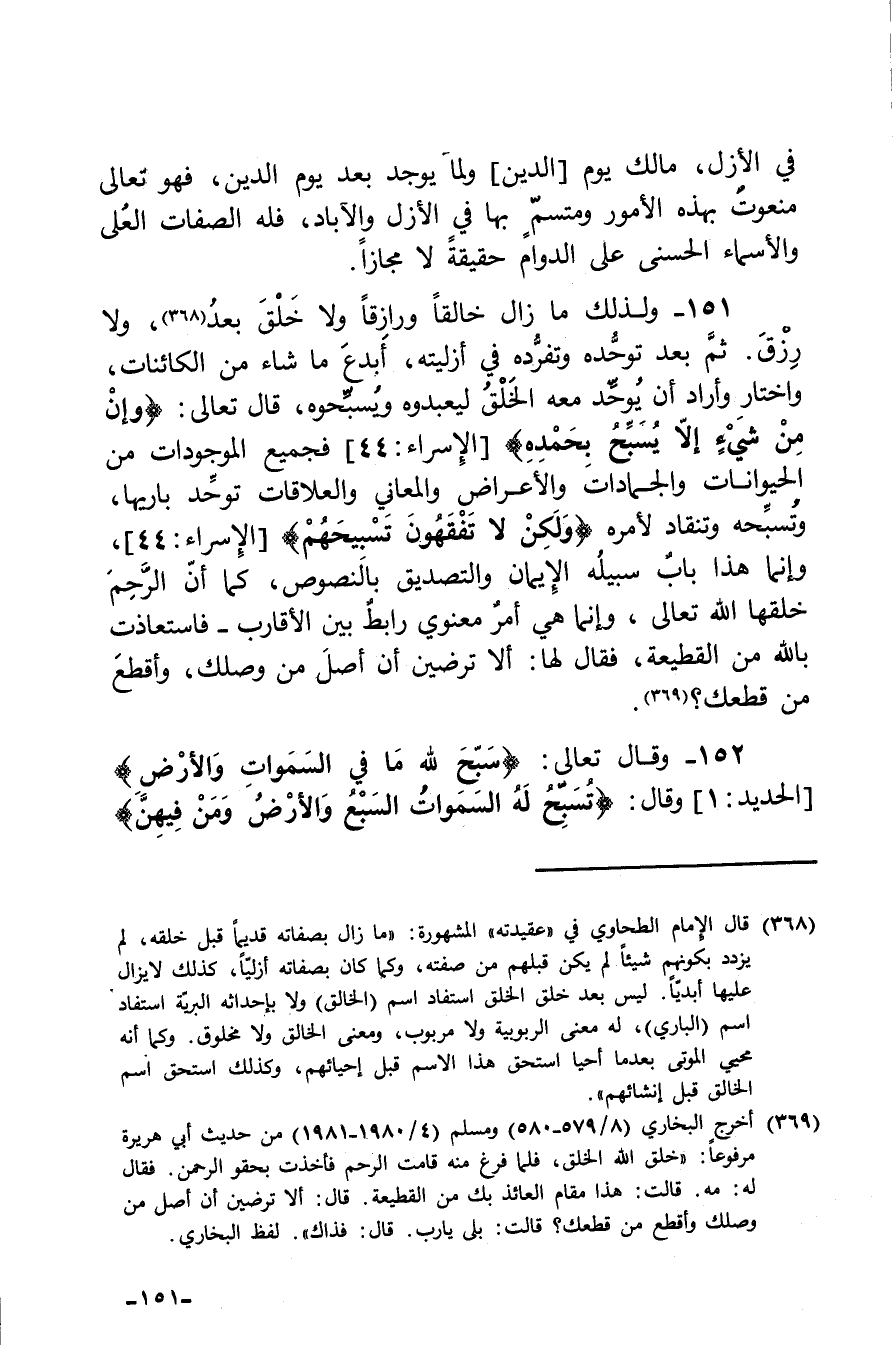 في الأزل، مالك يوم [الدين] ولما يوجد بعد يوم الدين، فهو تعالى
منعوتٌ بهذه الأمور ومتسمٌّ بها في الأزل والآباد، فله الصفات العُلى
والأسماء الحسنى على الدوام حقيقةً لا مجازاً.
١٥١ـ ولـذلك ما زال خالقاً ورازِقاً ولا خَلْقَ بعدُ(٣٦٨)، ولا
رِزْقَ. ثمَّ بعد توحُّده وتفرُّده في أزليته، أَبدعَ ما شاء من الكائنات،
واختار وأراد أن يُوحِّد معه الخَلْقُ ليعبدوه ويُسبِّحوه، قال تعالى: ﴿وإنْ
مِنْ شَيْءٍ إلاّ يُسَبِّحُ بِحَمْدِهِ﴾ [الإسراء:٤٤] فجميع الموجودات من
الحيوانـات والجـمادات والأعـراض والمعاني والعلاقات توحِّد باريها،
وتُسبِّحه وتنقاد لأمره ﴿وَلَكِنْ لا تَفْقَهُونَ تَسْبِيحَهُمْ﴾ [الإسراء:٤٤]،
وإنما هذا بابٌ سبيلُه الإِيمان والتصديق بالنصوص، كما أنّ الرَّحِمَ
خلقها الله تعالى ، وإنما هي أمرٌ معنوي رابطٌ بين الأقارب ـ فاستعاذت
بالله من القطيعة، فقال لها: ألا ترضين أن أصلَ من وصلك، وأقطعَ
من قطعك؟(٣٦٩).
١٥٢ـ وقـال تعالى: ﴿سَبّحَ لله مَا في السَمَواتِ وَالأرْضِ﴾
[الحديد:١] وقال: ﴿تُسَبِّحُ لَهُ السَمَواتُ السَبْعُ وَالأرْضُ وَمَنْ فِيهِنَّ﴾
(٣٦٨) قال الإمام الطحاوي في «عقيدته» المشهورة: «ما زال بصفاته قديماً قبل خلقه، لم
يزدد بكونهم شيئاً لم يكن قبلهم من صفته، وكما كان بصفاته أزليّاً، كذلك لايزال
عليها أبديّاً. ليس بعد خلق الخلق استفاد اسم (الخالق) ولا بإحداثه البريّة استفاد
اسم (الباري)، له معنى الربوبية ولا مربوب، ومعنى الخالق ولا مخلوق. وكما أنه
محيي الموتى بعدما أحيا استحق هذا الاسم قبل إحيائهم، وكذلك استحق اسم
الخالق قبل إنشائهم».
(٣٦٩) أخرج البخاري (٥٧٩/٨ـ٥٨٠) ومسلم (١٩٨٠/٤ـ١٩٨١) من حديث أبي هريرة
مرفوعاً: «خلق الله الخلق، فلما فرغ منه قامت الرحم فأخذت بحقو الرحمن. فقال
له: مه. قالت: هذا مقام العائذ بك من القطيعة. قال: ألا ترضين أن أصل من
وصلك وأقطع من قطعك؟ قالت: بلى يارب. قال: فذاك». لفظ البخاري.
ـ١٥١ـ